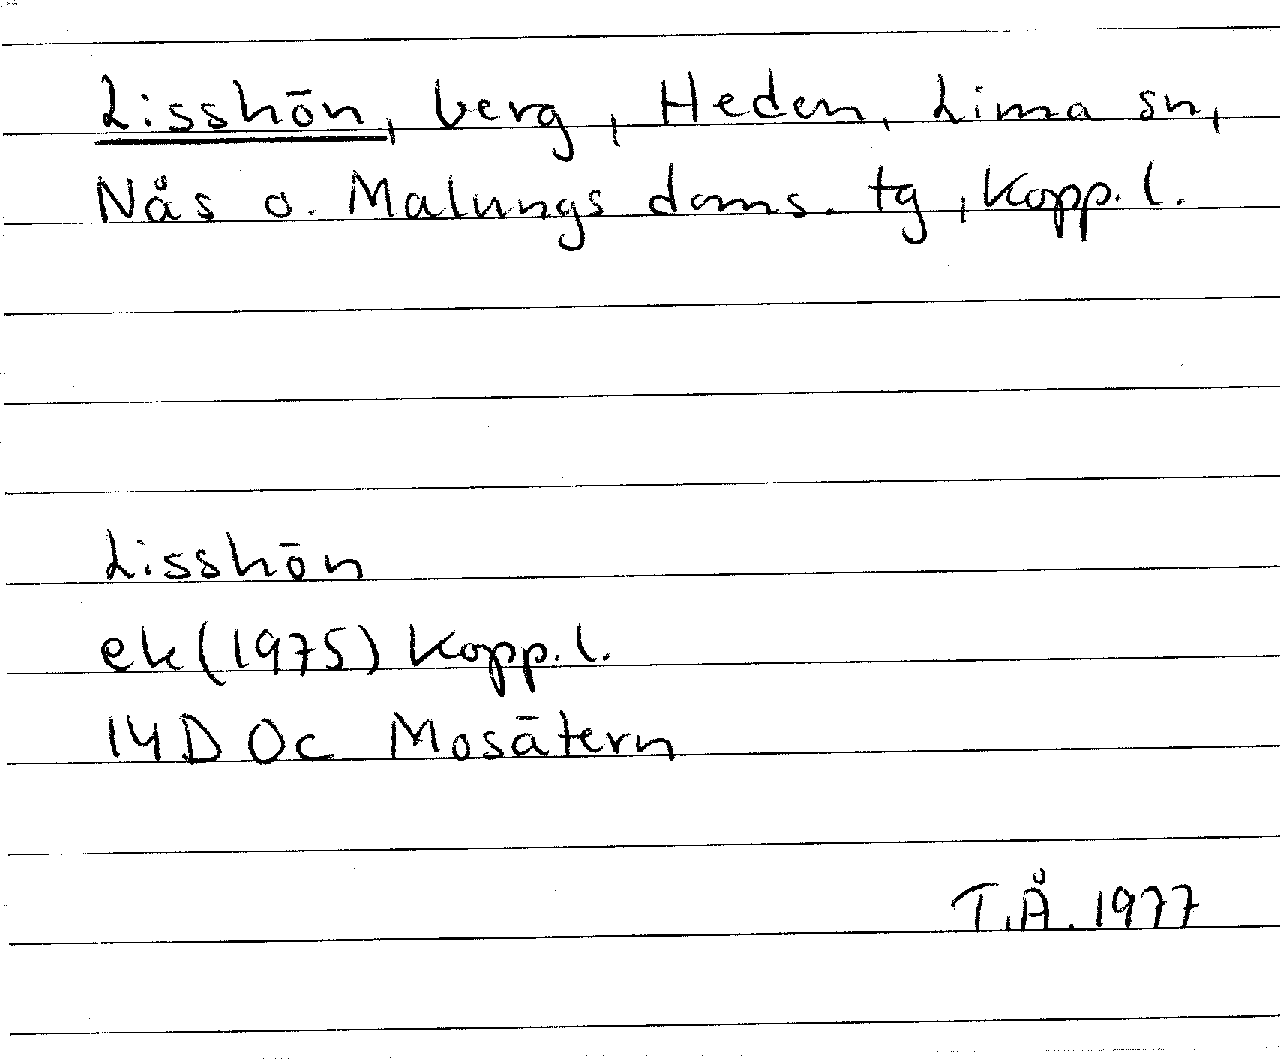 Lisshōn, berg, Heden, Lima sn,
Nås o. Malungs doms. tg, Kopp. l.
Lisshōn
ek (1975) Kopp. l.
14D 0c Mosātern
T.Å. 1977